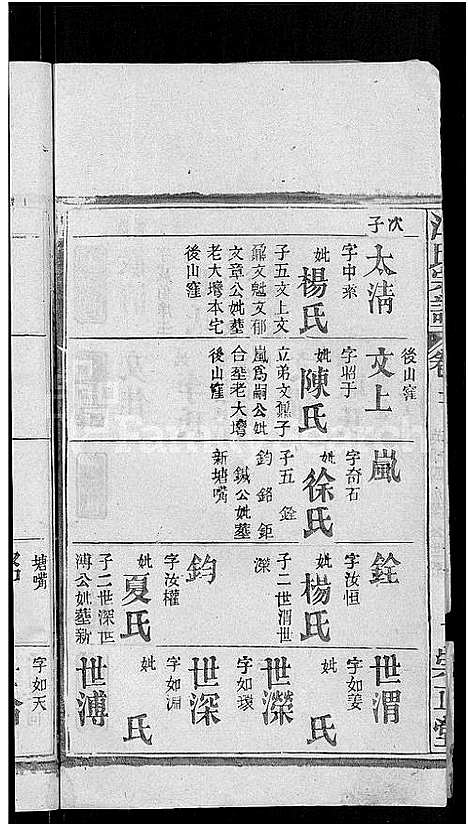 次子
太淸
字中來
妣楊氏
子五文上文
鼐文魁文郁
文章公妣墓
老大塆本宅
後山窪
後山窪
文上
字昭于
妣陳氏
立弟文鼐子
嵐爲嗣公妣
合塟老大塆
後山窪
嵐
字奇石
妣徐氏
子五 銓
鈞 銘 鉅
鍼公妣墓
新塘嘴
銓
字汝恒
妣楊氏
子二世渭世
深
鈞
字汝權
妣夏氏
子二世深世
溥公妣墓新
塘嘴
世渭
字如姜
妣 氏
世濚
字如環
世深
字如淵
妣 氏
世溥
字如天